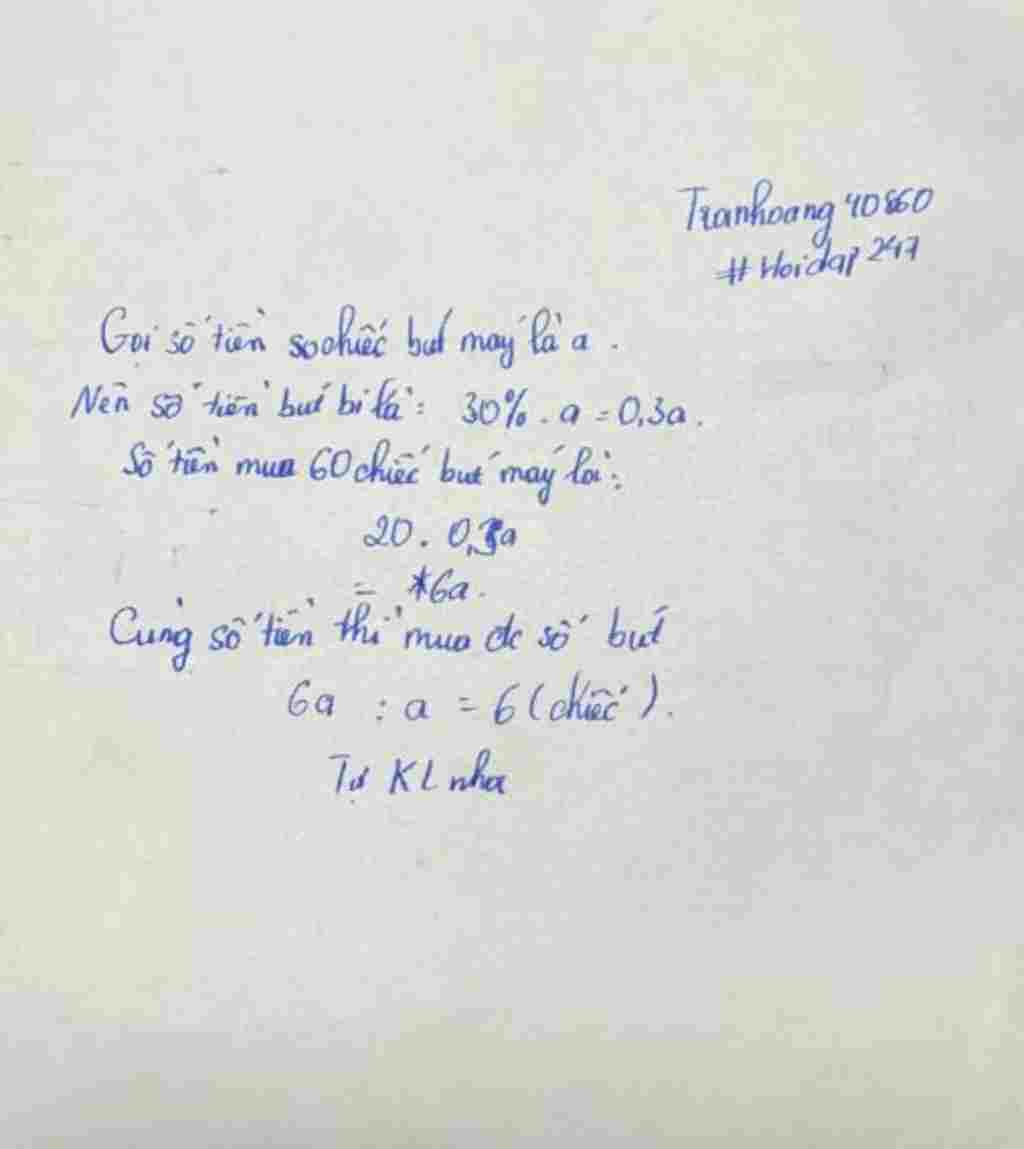 Tranhoang 40860
# Hoidap 247
Gọi số tiền chiếc bút máy là a .
Nên số tiền bút bi là : 30% . a = 0,3a .
Số tiền mua 60 chiếc bút máy là :
20 . 0,3a
= 6a .
Cùng số tiền thì mua đc số bút
6a : a = 6 (chiếc) .
Tự KL nha